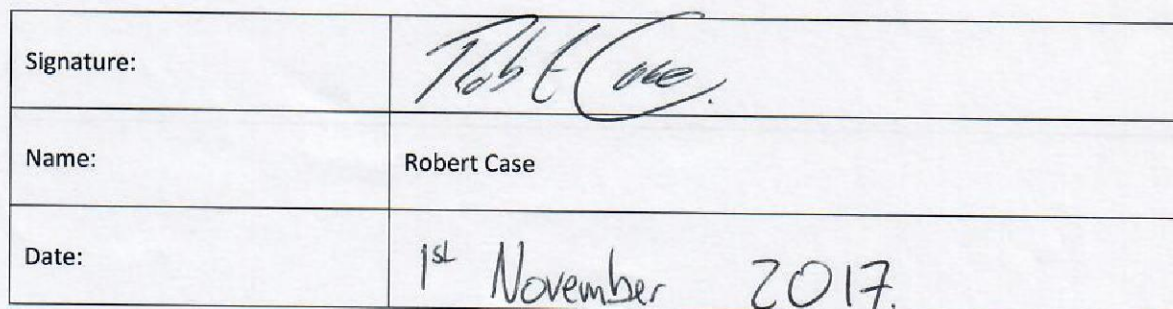 Signature: Rob E Case.
Name: Robert Case
Date: 1st November 2017.